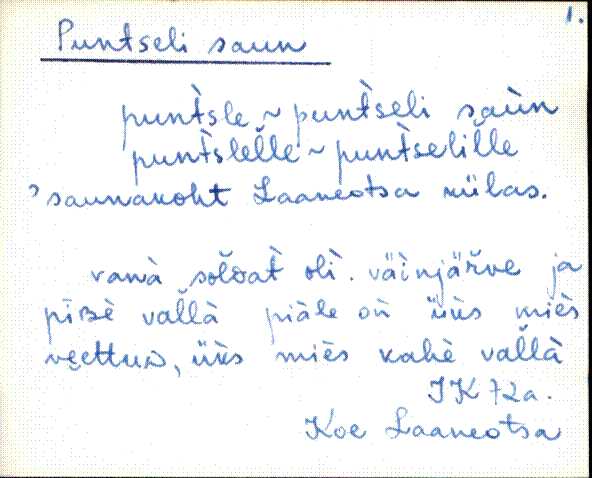 1.
Puntseli saun
punt̀sle ~ punt̀seli saùn
punt̀slel̆le ~ punt̀selil̆le
’saunakoht Laaneotsa külas.
vanà sol̆dat̀ olì. väìnjär̆ve ja
pīBè val̆là piäle oǹ üùs miès
vęettuD, üùs miès kahè val̆là
JK 72a.
Koe Laaneotsa